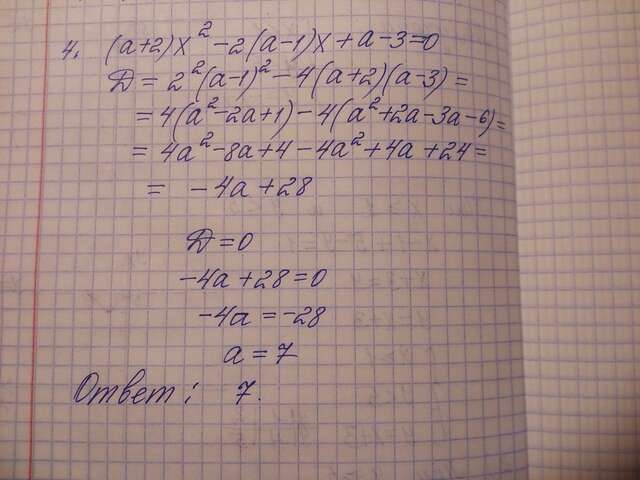 4. (a+2)x² -2(a-1)x+a-3=0
D = 2²(a-1)² - 4(a+2)(a-3) =
= 4(a²-2a+1) - 4(a²+2a-3a-6) =
= 4a²-8a+4-4a²+4a+24=
= -4a+28
D=0
-4a+28=0
-4a=-28
a=7
Ответ: 7.